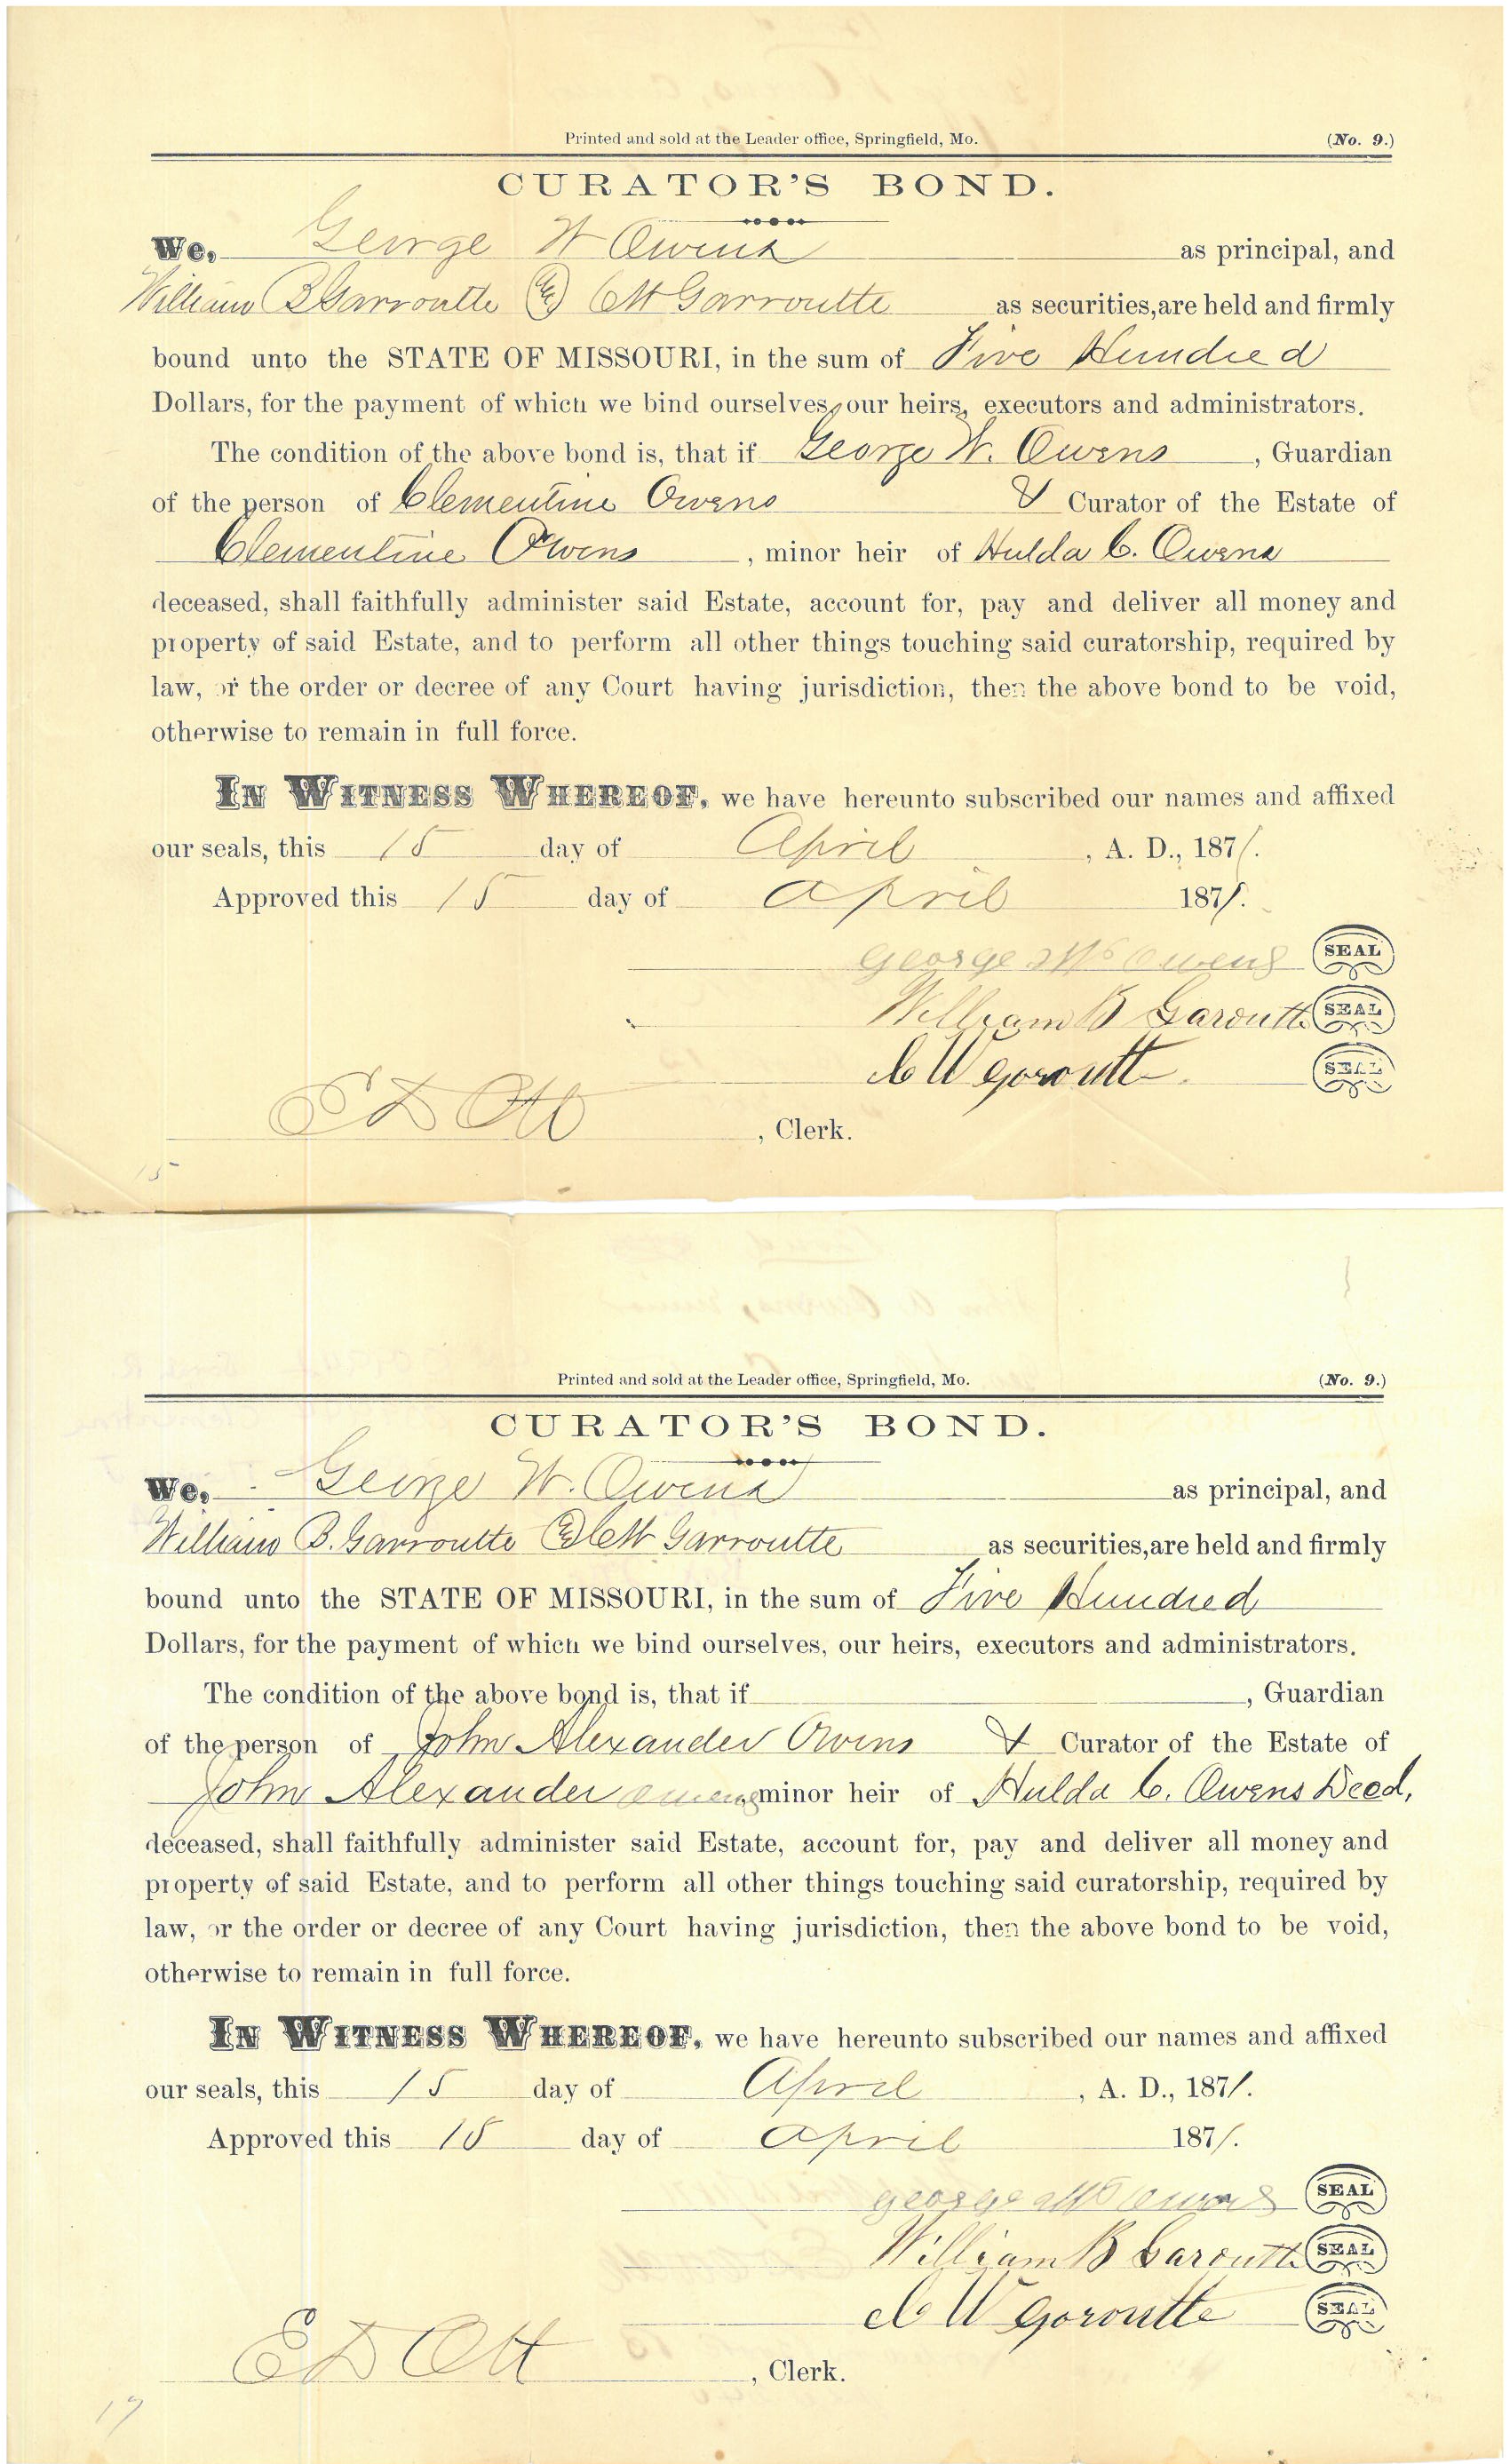 Printed and sold at the Leader office, Springfield, Mo. (No. 9.)
CURATOR'S BOND.
We, George W Owens as principal, and
William B Garroutte & C W Garroutte as securities, are held and firmly
bound unto the STATE OF MISSOURI, in the sum of Five Hundred
Dollars, for the payment of which we bind ourselves, our heirs, executors and administrators.
The condition of the above bond is, that if George W. Owens, Guardian
of the person of Clementine Owens & Curator of the Estate of
Clementine Owens, minor heir of Hulda C. Owens
deceased, shall faithfully administer said Estate, account for, pay and deliver all money and
property of said Estate, and to perform all other things touching said curatorship, required by
law, or the order or decree of any Court having jurisdiction, then the above bond to be void,
otherwise to remain in full force.
IN WITNESS WHEREOF, we have hereunto subscribed our names and affixed
our seals, this 15 day of April, A. D., 1871.
Approved this 15 day of April 1871.
George W Owens SEAL
William B Garoutte SEAL
C W Goroutte SEAL
E D Ott, Clerk.
15
Printed and sold at the Leader office, Springfield, Mo. (No. 9.)
CURATOR'S BOND.
We, George W. Owens as principal, and
William B. Garroutte & C W Garroutte as securities, are held and firmly
bound unto the STATE OF MISSOURI, in the sum of Five Hundred
Dollars, for the payment of which we bind ourselves, our heirs, executors and administrators.
The condition of the above bond is, that if , Guardian
of the person of John Alexander Owens & Curator of the Estate of
John Alexander owens, minor heir of Hulda C. Owens Decd,
deceased, shall faithfully administer said Estate, account for, pay and deliver all money and
property of said Estate, and to perform all other things touching said curatorship, required by
law, or the order or decree of any Court having jurisdiction, then the above bond to be void,
otherwise to remain in full force.
IN WITNESS WHEREOF, we have hereunto subscribed our names and affixed
our seals, this 15 day of April, A. D., 1871.
Approved this 15 day of April 1871.
George W Owens SEAL
William B Garoutte SEAL
C W Goroutte SEAL
E D Ott, Clerk.
17